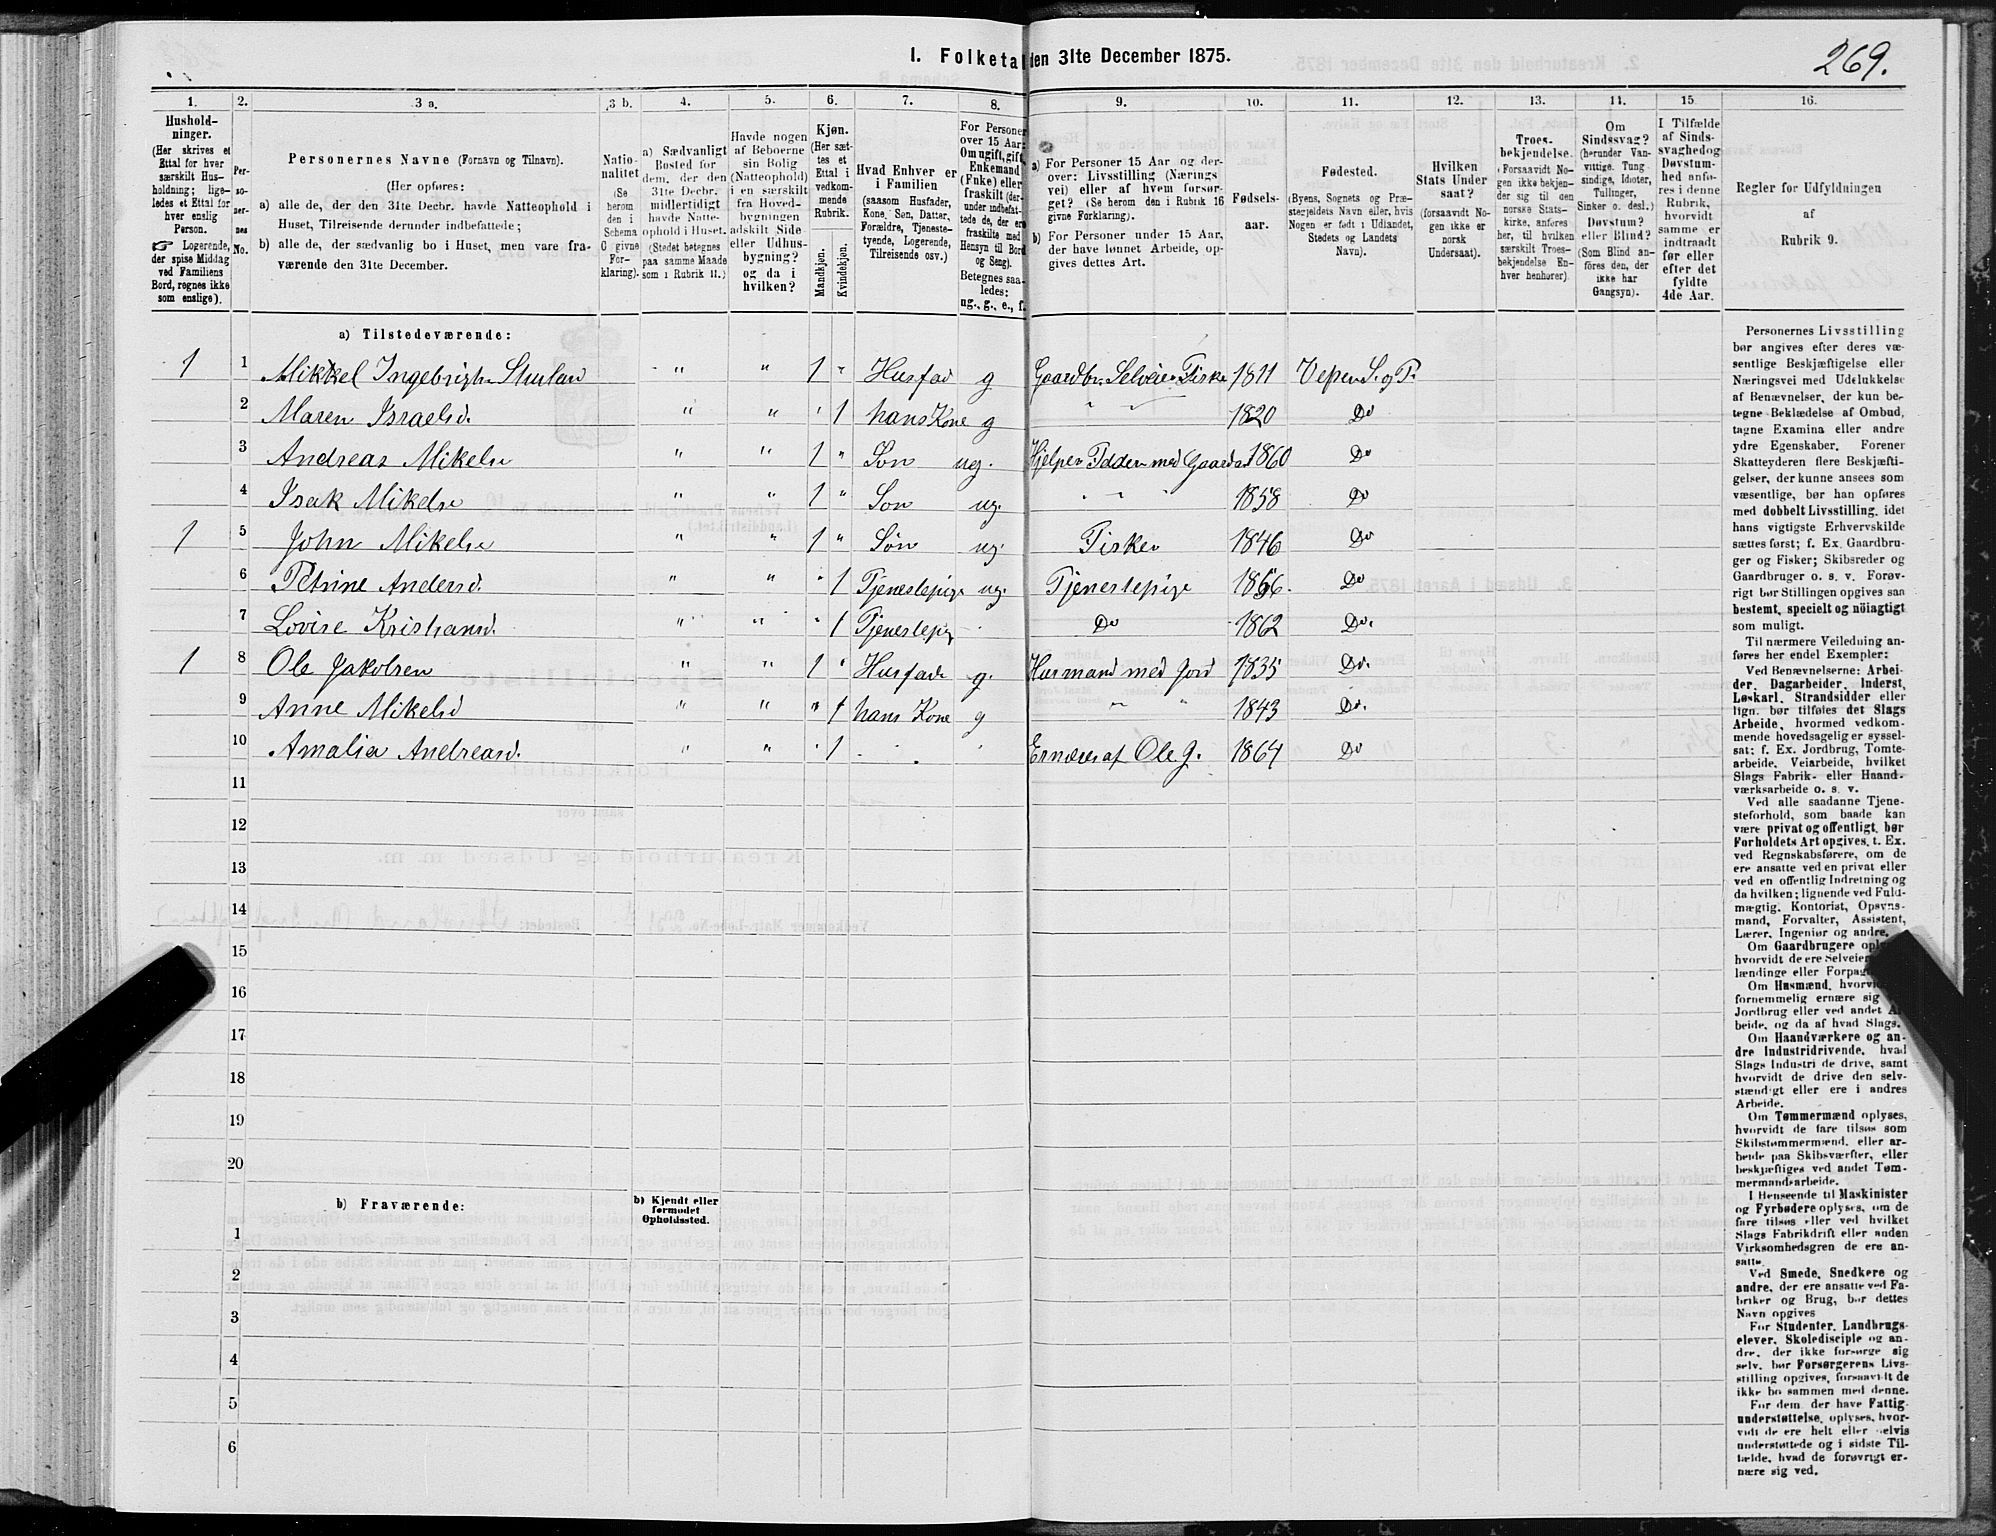 I. Folketal den 31te December 1875.
269.
1. 2. 3 a. 3 b. 4. 5. 6. 7. 8. 9. 10. 11. 12. 13. 14. 15 16.
Hushold-
ninger.
(Her skrives et
Ettal for hver
særskilt Hus-
holdning; lige-
ledes et Ettal for
hver enslig
Person.
☞ Logerende,
der spise Middag
ved Familiens
Bord, regnes ikke
som enslige).
Per-
so-
ner-
nes
No.
Personernes Navne (Fornavn og Tilnavn).
(Her opføres:
a) alle de, der den 31te Decbr. havde Natteophold i
Huset, Tilreisende derunder indbefattede;
b) alle de, der sædvanlig bo i Huset, men vare fra-
værende den 31te December.
Natio-
nalitet
(Se
herom
den i
Schema
O givne
For-
klaring).
a) Sædvanligt
Bosted for
dem, der den
31te Decbr.
midlertidigt
havde Natte-
ophold i Huset.
(Stedet betegnes
paa samme Maade
som i Rubrik 11.)
Havde nogen
af Beboerne
sin Bolig
(Natteophold)
i en særskilt
fra Hoved-
bygningen
adskilt Side-
eller Udhus-
bygning?
og da i
hvilken?
Kjøn.
(Her sæt-
tes et
Ettal i
vedkom-
mende
Rubrik.
Mandkjøn.
Kvindekjøn.
Hvad Enhver er
i Familien
(saasom Husfader,
Kone, Søn, Datter,
Forældre, Tjeneste-
tyende, Logerende,
Tilreisende osv.)
For Personer
over 15 Aar:
Om ugift, gift,
Enkemand
(Enke) eller
fraskilt (der-
under indbefat-
tede de, der ere
fraskilte med
Hensyn til Bord
og Seng).
Betegnes saa-
ledes:
ug., g., e., f.
a) For Personer 15 Aar og der-
over: Livsstilling (Nærings-
vei) eller af hvem forsør-
get? (Se herom den i Rubrik 16
givne Forklaring).
b) For Personer under 15 Aar,
der have lønnet Arbeide, op-
gives dettes Art.
Fødsels-
aar.
Fødested.
(Byens, Sognets og Præ-
stegjeldets Navn eller, hvis
Nogen er født i Udlandet,
Stedets og Landets
Navn).
Hvilken
Stats Under
saat?
(forsaavidt No-
gen ikke er
norsk
Undersaat).
Troes-
bekjendelse.
(Forsaavidt No-
gen ikke bekjen-
der sig til den
norske Stats-
kirke, anføres
her, til hvilken
særskilt Troes-
bekjendelse En-
hver henhører).
Om
Sindssvag?
(herunder Van-
vittige, Tung-
sindige, Idioter,
Tullinger,
Sinker o. desl.)
Døvstum?
eller Blind?
(Som Blind an-
føres den, der
ikke har
Gangsyn).
I Tilfælde
af Sinds-
svaghed og
Døvstum-
hed anfø-
res i denne
Rubrik,
hvorvidt
samme er
indtraadt
før eller
efter det
fyldte
4de Aar.
Regler for Udfyldningen
af
Rubrik 9.
a) Tilstedeværende:
1 1 Mikkel Ingebrigts. " " 1 " Husfad g Gaardbr. Selveier Fisker 1811 S. og P.
2 Maren Israelsd. " " " 1 hans Kone g " " 1820 Do
3 Andreas Mikelse " " 1 " Son ug. Hjelper Fader med Gaarda 1860 Do
4 Isak Mikelse " " 1 " Son ug. " " " 1858 Do
1 5 John Mikelse " " 1 " Søn ug. Fisker 1846 Do
6 Petrine Andersd. " " " 1 Tjenestepige ug. Tjenestepige Do
7 Lovise Kristiansd. " " " 1 Tjenestepig Do 1862 Do.
1 8 Ole Jakobsen " " 1 " Husfade g. Husmand med Jord 1835 Do.
9 Anne Mikelsd " " " 1 hans Kone g " " 1843 Do.
10 Amalia Andreasd. " " " 1 Ernæres af Ole J. 1864 Do
11
12
13
14
15
16
17
18
19
20
b) Fraværende:
b) Kjendt eller
formodet
Opholdssted.
1
2
3
4
5
6
Personernes Livsstilling
bør angives efter deres væ-
sentlige Beskjæftigelse eller
Næringsvei med Udelukkelse
af Benævnelser, der kun be-
tegne Beklædelse af Ombud,
tagne Examina eller andre
ydre Egenskaber. Forener
Skatteyderen flere Beskjæfti-
gelser, der kunne ansees som
væsentlige, bør han opføres
med dobbelt Livsstilling, idet
hans vigtigste Erhvervskilde
sættes først; f. Ex. Gaardbru-
ger og Fisker; Skibsreder og
Gaardbruger o. s. v. Forøv-
rigt bør Stillingen opgives saa
bestemt, specielt og nöiagtigt
som muligt.
Til nærmere Veiledning an-
føres her endel Exempler:
Ved Benævnelserne: Arbei-
der, Dagarbeider, Inderst,
Løskarl, Strandsidder eller
lign. bør tilføies det Slags
Arbeide, hvormed vedkom-
mende hovedsagelig er syssel-
sat; f. Ex. Jordbrug, Tomte-
arbeide, Veiarbeide, hvilket
Slags Fabrik- eller Haand-
værksarbeide o. s. v.
Ved alle saadanne Tjene-
steforhold, som baade kan
være privat og offentligt, bør
Forholdets Art opgives, t. Ex.
ved Regnskabsførere, om de
ere ansatte ved en privat eller
ved en offentlig Indretning og
da hvilken; lignende ved Fuld-
mægtig, Kontorist, Opsyns-
mand, Forvalter, Assistent,
Lærer, Ingeniør og andre.
Om Gaardbrugere
hvorvidt de ere Selveiere,
lændinge eller
Om Husmænd,
fornemmelig ernære sig
Jordbrug eller ved andet
beide, og da af hvad Slags.
Om Haandværkere og an-
dre Industridrivende, hvad
Slags Industri de drive, samt
hvorvidt de drive den selv-
stændigt eller ere i andres
Arbeide.
Om Tømmermænd oplyses,
hvorvidt de fare tilsøs som
Skibstømmermænd, eller ar-
beide paa Skibsværfter, eller
beskjæftiges ved andet Tøm-
mermandsarbeide.
I Henseende til Maskinister
og Fyrbødere oplyses, om de
fare tilsøs eller ved hvilket
Slags Fabrikdrift eller anden
Virksomhedsgren de ere an-
satte.
Ved Smede, Snedkere og
andre, der ere ansatte ved Fa-
briker og Brug, bør dettes
Navn opgives
For Studenter, Landbrugs-
elever, Skoledisciple og an-
dre, der ikke forsørge sig
selv, bør Forsørgerens Livs-
stilling opgives, forsaavidt de
ikke bo sammen med denne.
For dem, der have Fattig-
understøttelse, oplyses, hvor-
vidt de ere helt eller delvis
understøttede og i sidste Til-
fælde, hvad de forøvrigt er-
nære sig ved.